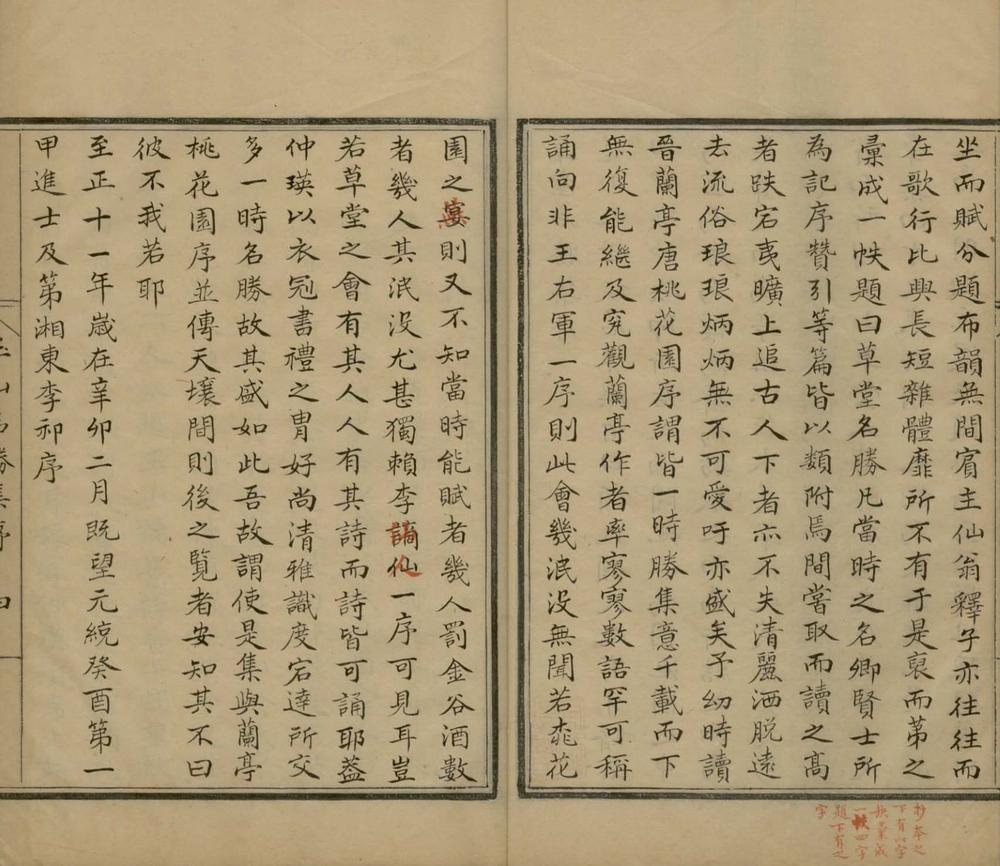 坐而賦分題布韻無間賔主仙翁釋子亦往往而
在歌行比興長短雜體靡所不有于是裒而第之
彙成一帙題曰草堂名勝凡當時之名卿賢士所
為記序贊引等篇皆以類附焉間嘗取而讀之高
者跌宕夷曠上追古人下者亦不失清麗洒脱遠
去流俗琅琅炳炳無不可愛吁亦盛矣予幼時讀
晉蘭亭唐桃花園序謂皆一時勝集意千載而下
無復能繼及究觀蘭亭作者率寥寥數語罕可稱
誦向非王右軍一序則此會幾泯没無聞若桃花
園之宴則又不知當時能賦者幾人罰金谷酒數
者幾人其泯没尤甚獨賴李謫仙一序可見耳豈
若草堂之會有其人人有其詩而詩皆可誦耶葢
仲瑛以衣冠書禮之胄好尚清雅識度宕達所交
多一時名勝故其盛如此吾故謂使是集與蘭亭
桃花園序並傳天壤間則後之覧者安知其不曰
彼不我若耶
至正十一年嵗在辛卯二月既望元統癸酉第一
甲進士及第湘東李祁序
抄本之
下有以字
彙成
一帙四字
題下有之
字